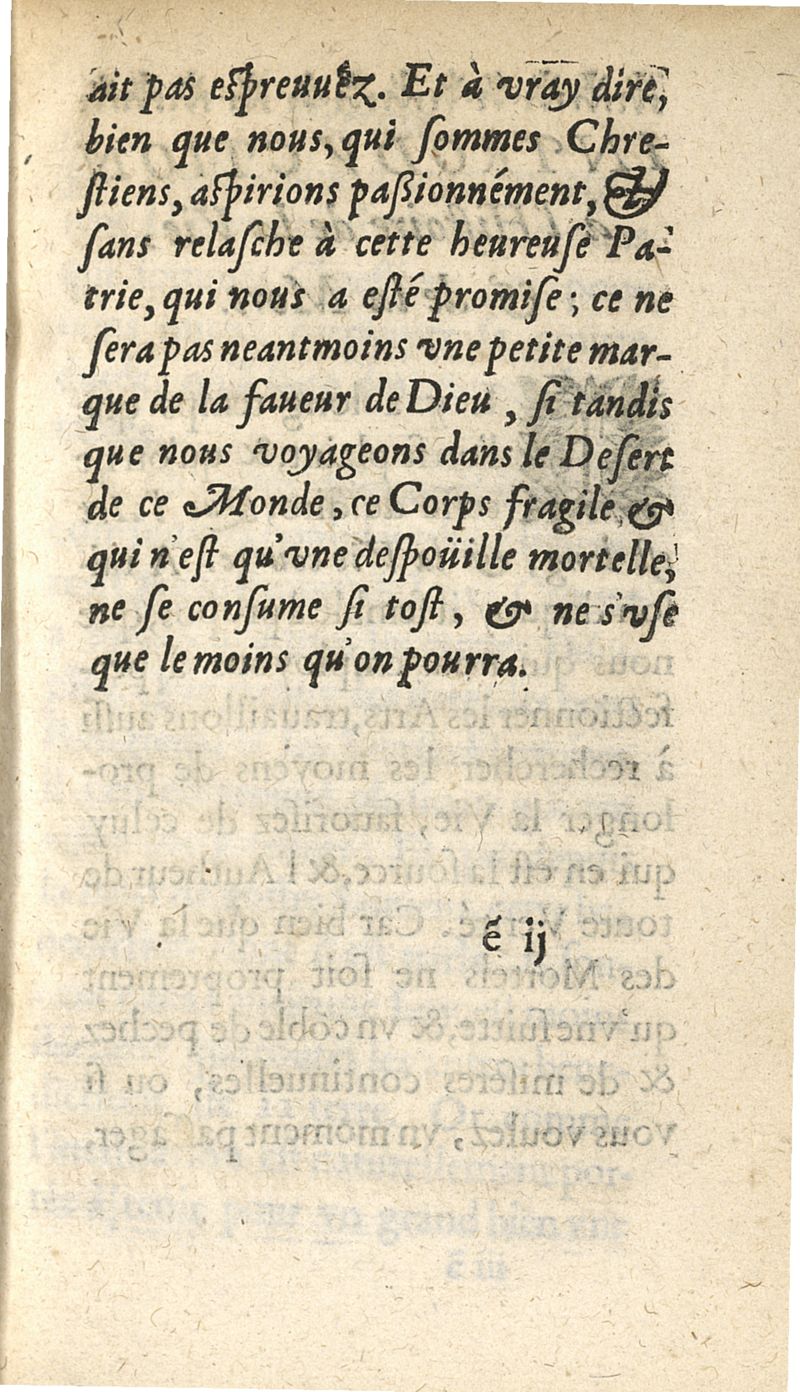 ait pas eſpreuuéz. Et à vray dire,
bien que nous, qui ſommes Chre-
ſtiens, aſpirions paſſionnément, &
ſans relaſche à cette heureuſe Pa-
trie, qui nous a eſté promiſe ; ce ne
ſera pas neantmoins vne petite mar-
que de la faueur de Dieu , ſi tandis
que nous voyageons dans le Deſert
de ce Monde, ce Corps fragile &
qui n'eſt qu'vne deſpoüille mortelle,
ne ſe conſume ſi toſt , & ne s'vſe
que le moins qu'on pourra.
ẽ ij